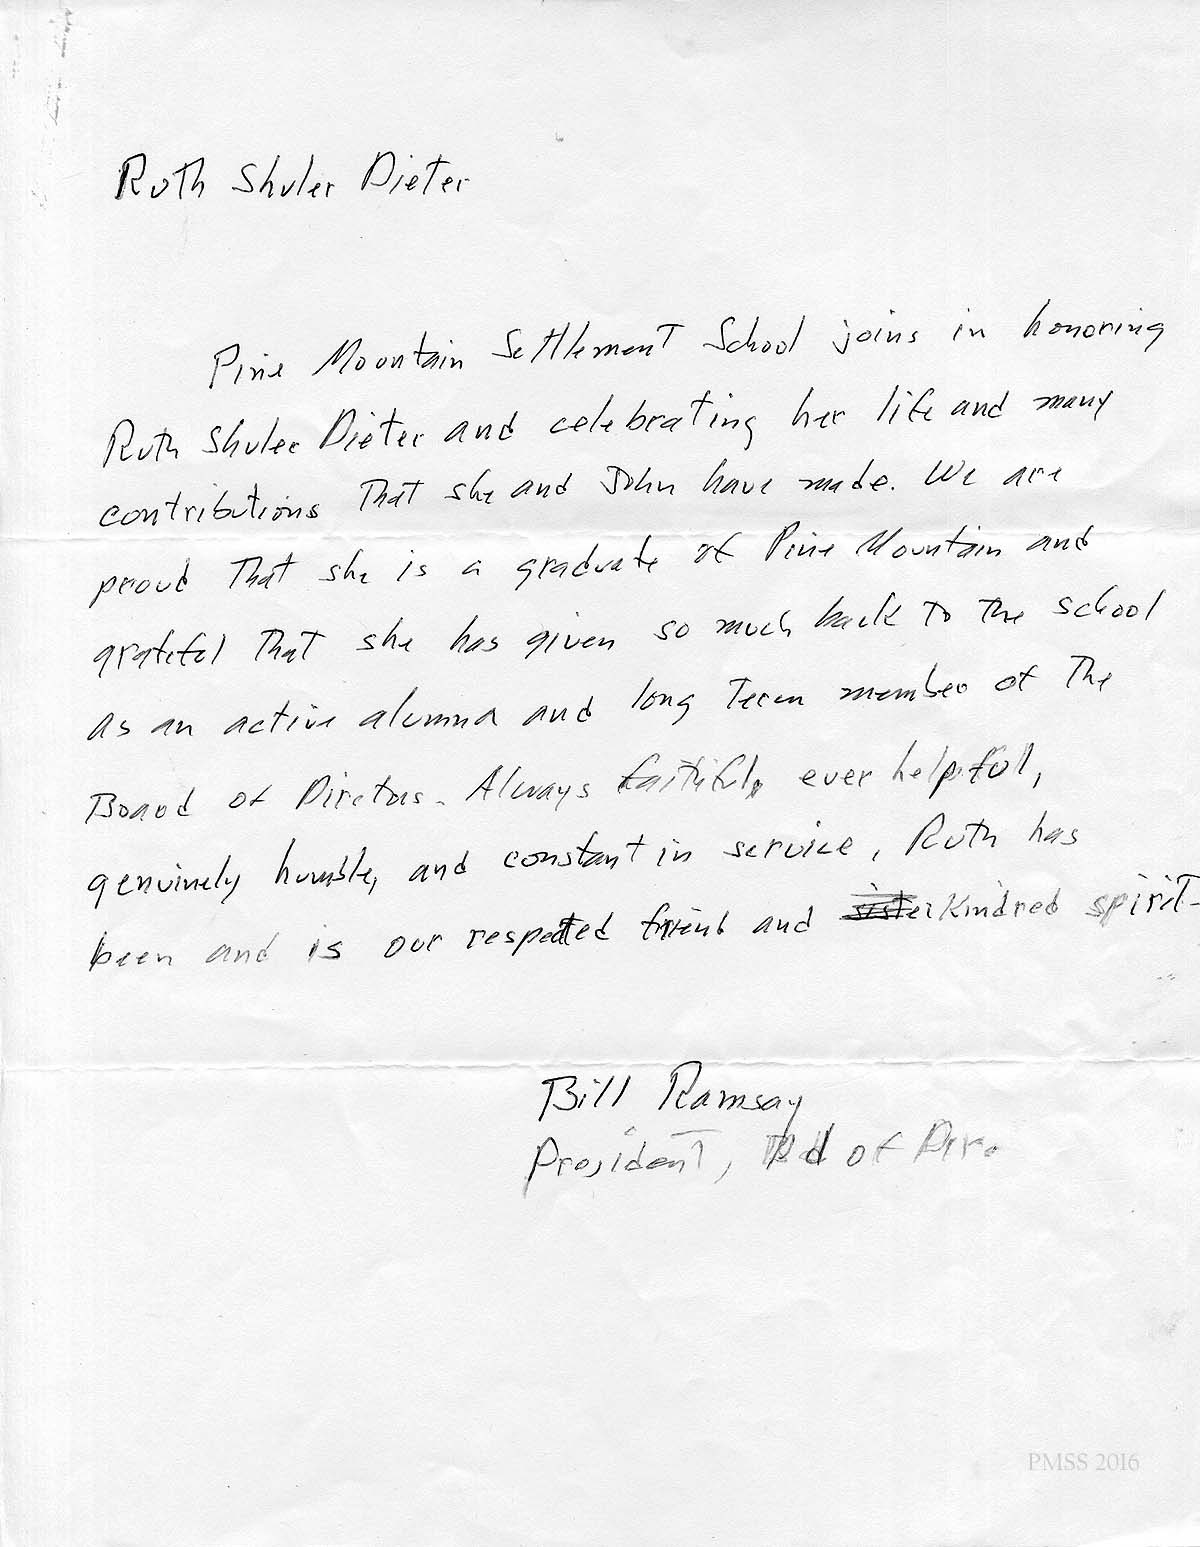 Ruth Shuler Dieter
Pine Mountain Settlement School joins in honoring
Ruth Shuler Dieter and celebrating her life and many
contributions That she and John have made. We are
proud That she is a graduate of Pine Mountain and
grateful That she has given so much back to the school
as an active alumna and long Term member of The
Board of Diretors. Always faithful, ever helpful,
genuinely humble, and constant in service, Ruth has
been and is our respected friend and sister kindred spirit-
Bill Ramsay
President, Bd of Dir.
PMSS 2016